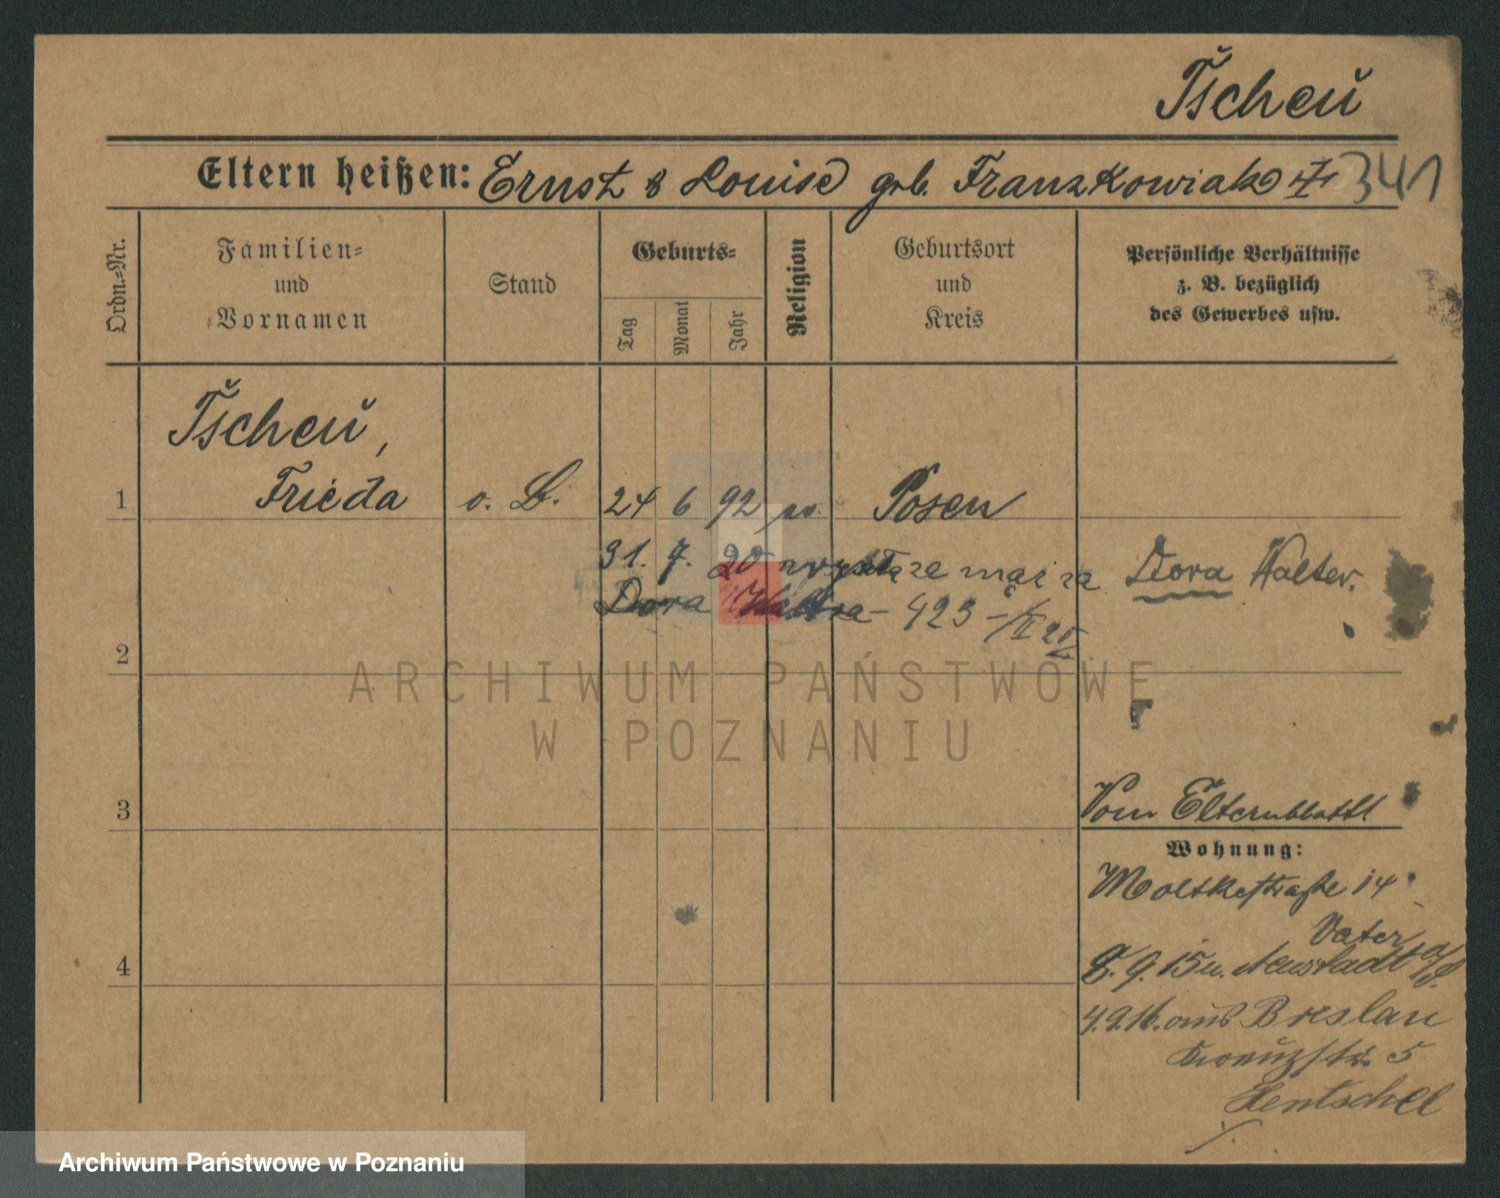 Tscheu
Eltern heißen: Ernst & Louise geb. Franzkowiak 341
Ordn.-Nr.
Familien-
und
Vornamen
Stand
Geburts-
Tag
Monat
Jahr
Religion
Geburtsort
und
Kreis
Persönliche Verhältnisse
z. B. bezüglich
des Gewerbes usw.
Tscheu,
1 Frieda o. B. 24 6 92 ev. Posen
31. 7. 20 Dora Walter.
Dora 423
2
ARCHIWUM PAŃSTWOWE
W POZNANIU
3 Vom Elternblatt
Wohnung:
Moltkestraße 14
Vater
4 8. 9. 15 n. Neustadt
4.9.16. aus Breslau
5
Hentschel
Archiwum Państwowe w Poznaniu